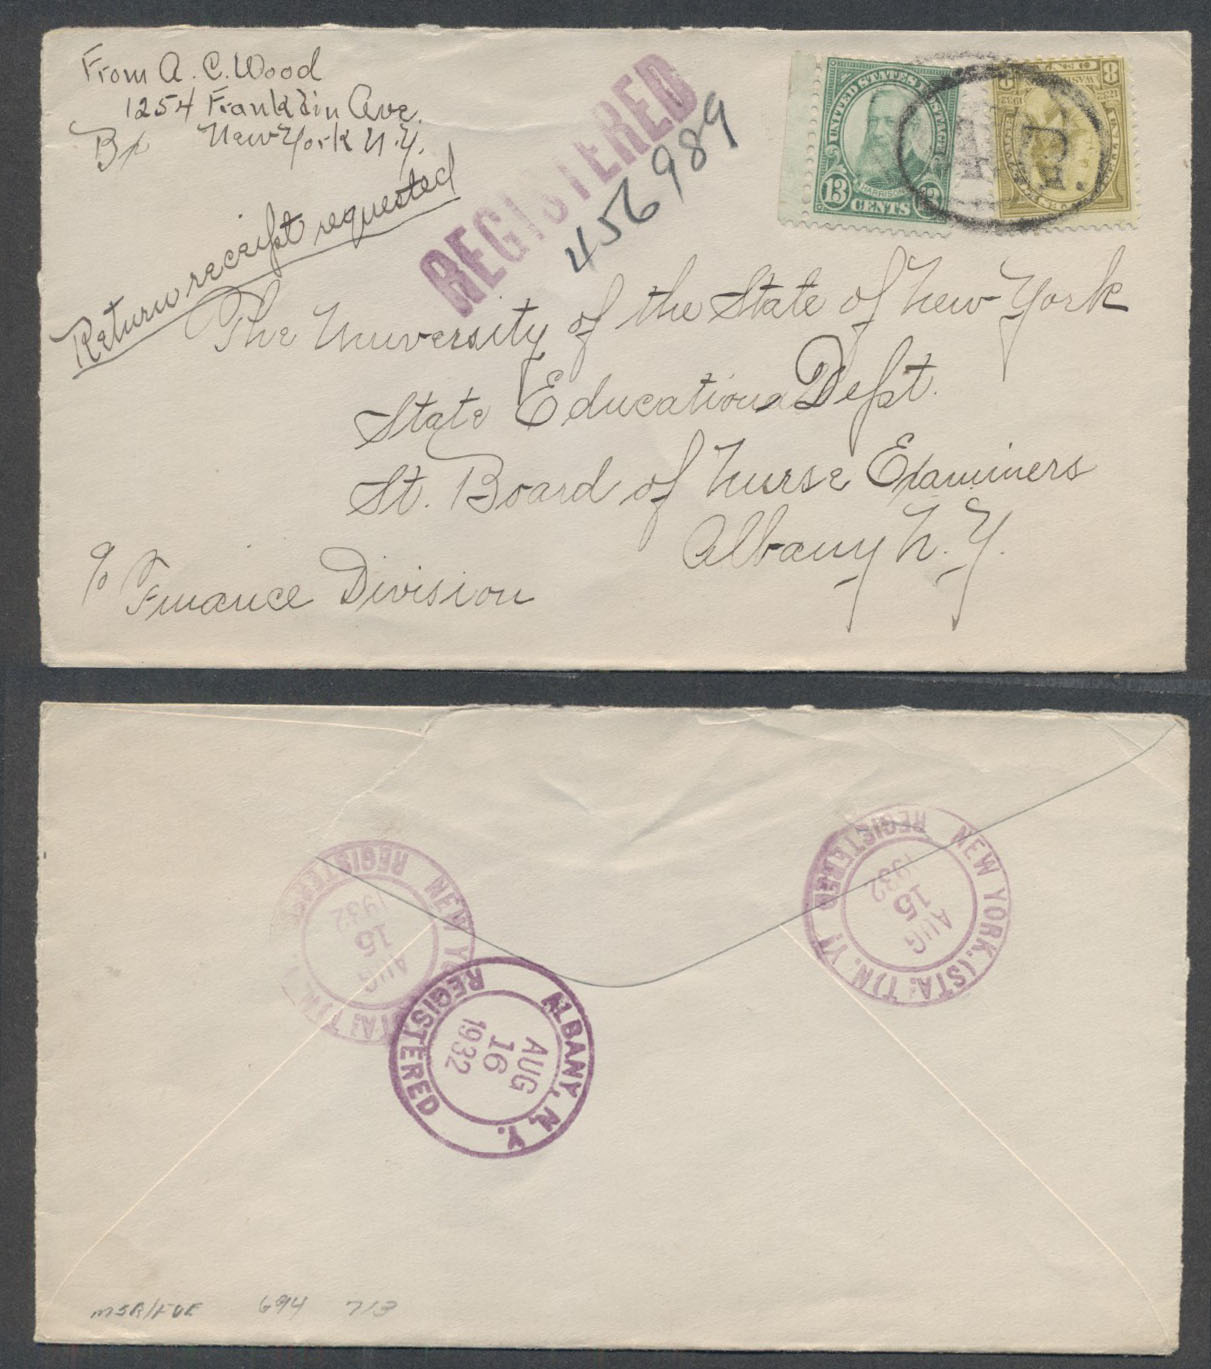 From A. C. Wood
1254 Franklin Ave.
Bx New York N.Y.
Return receipt requested
REGISTERED
456989
UNITED STATES POSTAGE
HARRISON
13 CENTS 13
8 8
The University of the State of New York
State Education Dept.
St. Board of Nurse Examiners
Albany N.Y.
% Finance Division
NEW YORK, (STA. T) N. Y.
REGISTERED
AUG
15
1932
NEW YORK, (STA. T) N. Y.
REGISTERED
AUG
15
1932
ALBANY, N. Y.
REGISTERED
AUG
16
1932
694 713